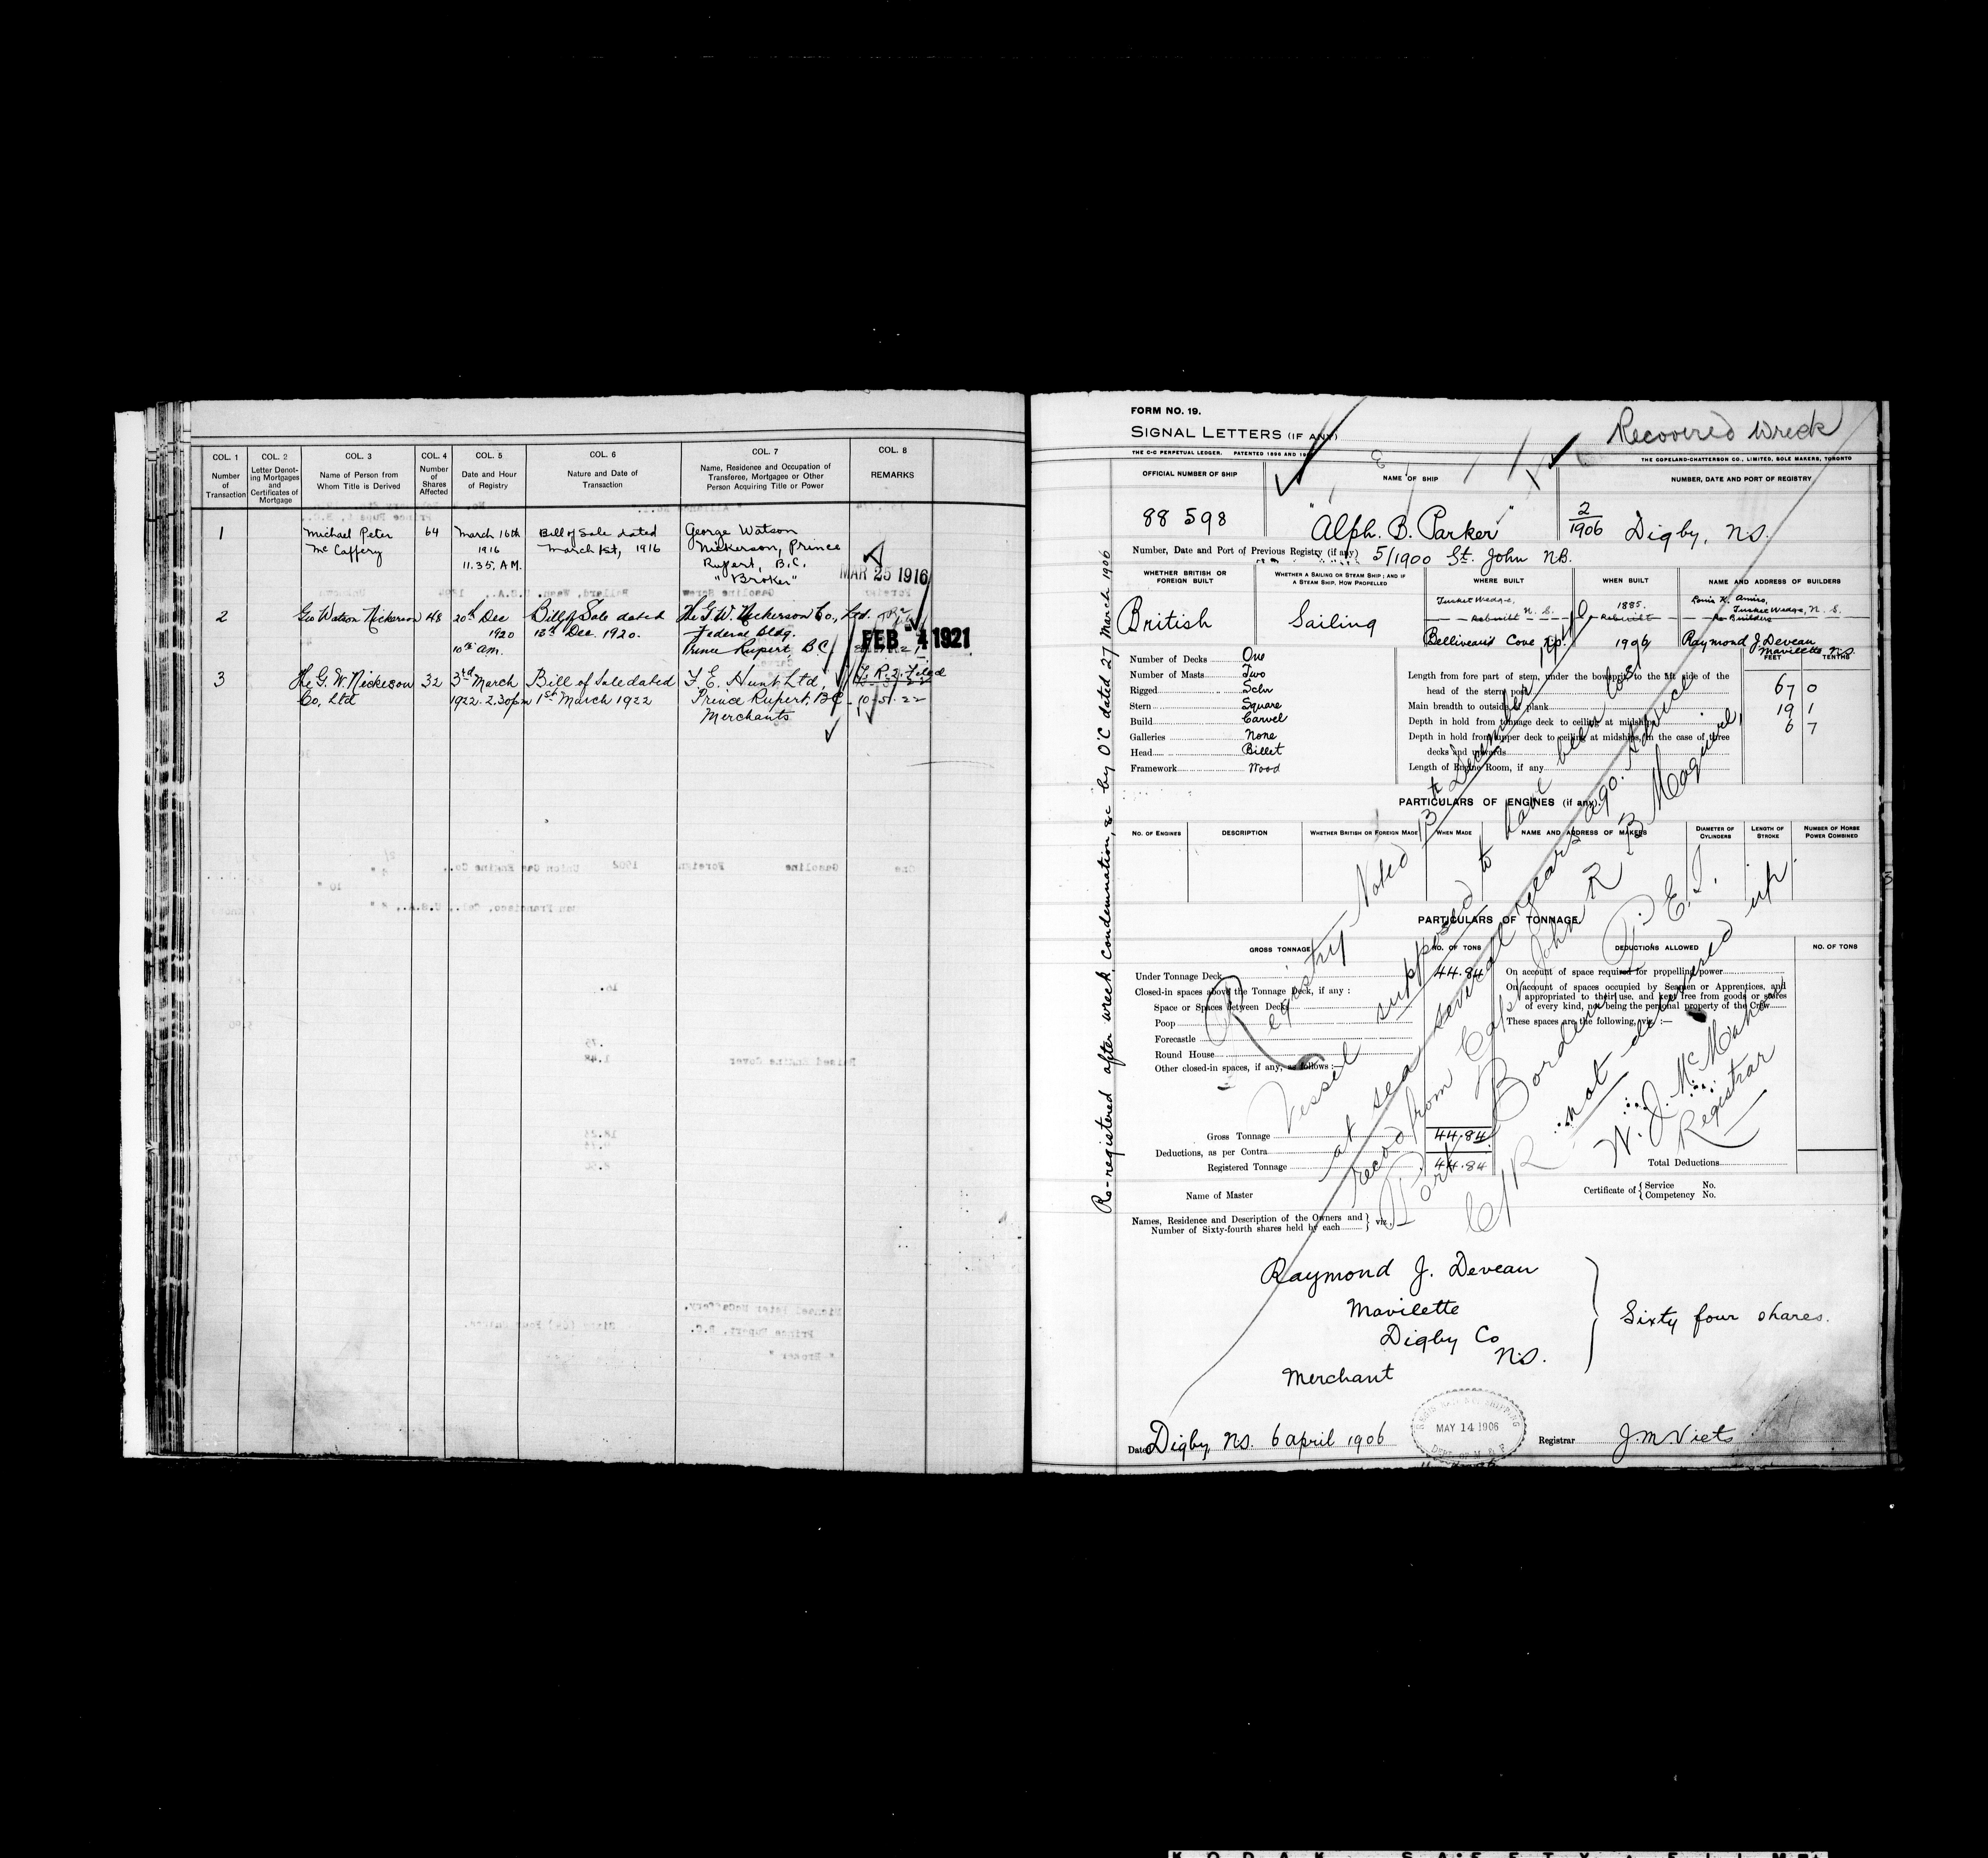 COL. 1 COL. 2 COL. 3 COL. 4 COL. 5 COL. 6 COL. 7 COL. 8
Number of Transaction
Letter Denoting Mortgages and Certificates of Mortgage
Name of Person from Whom Title is Derived
Number of Shares Affected
Date and Hour of Registry
Nature and Date of Transaction
Name, Residence and Occupation of Transferee, Mortgagee or Other Person Acquiring Title or Power
REMARKS
1 Michael Peter 64 March 16th Bill of Sale dated George Watson
McCaffery 1916 March 1st, 1916 Nickerson, Prince
11.35. A.M. Rupert, B.C.
"Broker" MAR 25 1916
2 Geo Watson Nickerson 48 20th Dec Bill of Sale dated The G.W. Nickerson Co., Ltd.
1920 13th Dec. 1920. Federal Bldg.
10 am. Prince Rupert, B.C. FEB 4 1921
3 The G. W. Nickerson 32 3rd March Bill of Sale dated F. E. Hunt Ltd,
Co, Ltd 1922. 2.30pm 1st March 1922 Prince Rupert, BC 10-5-22
Merchants
FORM NO. 19.
SIGNAL LETTERS (IF ANY)
Recovered Wreck
THE C-C PERPETUAL LEDGER.
THE COPELAND-CHATTERSON CO., LIMITED, SOLE MAKERS, TORONTO
OFFICIAL NUMBER OF SHIP NAME OF SHIP NUMBER, DATE AND PORT OF REGISTRY
88 598 "Alph. B. Parker" 2/1906 Digby, N.S.
Number, Date and Port of Previous Registry (if any) 5/1900 St. John N.B.
WHETHER BRITISH OR FOREIGN BUILT
WHETHER A SAILING OR STEAM SHIP; AND IF A STEAM SHIP, HOW PROPELLED
WHERE BUILT
WHEN BUILT
NAME AND ADDRESS OF BUILDERS
Tusket Wedge, N.S. 1885. Tusket Wedge, N. S.
Rebuilt Rebuilt Re Builders
British Sailing Belliveau's Cove 1906 Raymond J Deveau
Mavilette N.S.
FEET TENTHS
Number of Decks One
Number of Masts Two
Rigged Schr
Stern Square
Build Carvel
Galleries None
Head Billet
Framework Wood
Length from fore part of stem, under the bowsprit, to the aft side of the
head of the stern post 67 0
Main breadth to outside of plank 19 1
Depth in hold from tonnage deck to ceiling at midships 6 7
Depth in hold from upper deck to ceiling at midships, in the case of three
decks and upwards
Length of Engine Room, if any
PARTICULARS OF ENGINES (if any)
NO. OF ENGINES DESCRIPTION WHETHER BRITISH OR FOREIGN MADE WHEN MADE NAME AND ADDRESS OF MAKERS DIAMETER OF CYLINDERS LENGTH OF STROKE NUMBER OF HORSE POWER COMBINED
PARTICULARS OF TONNAGE
GROSS TONNAGE NO. OF TONS DEDUCTIONS ALLOWED NO. OF TONS
Under Tonnage Deck 44.84
Closed-in spaces above the Tonnage Deck, if any :
Space or Spaces between Decks
Poop
Forecastle
Round House
Other closed-in spaces, if any, as follows :—
On account of space required for propelling power
On account of spaces occupied by Seamen or Apprentices, and
appropriated to their use, and kept free from goods or stores
of every kind, not being the personal property of the Crew
These spaces are the following, viz :—
Gross Tonnage 44.84
Deductions, as per Contra
Registered Tonnage 44.84
Total Deductions
Name of Master
Certificate of Service No.
Competency No.
Names, Residence and Description of the Owners and
Number of Sixty-fourth shares held by each viz
Raymond J. Deveau
Mavilette
Digby Co
N.S.
Merchant
Sixty four shares.
Dated Digby, N.S. 6 April 1906
MAY 14 1906
Registrar J.M Viets
Re-registered after wreck, condemnation, &c by O'C dated 27 March 1906
Registry Noted 13th December
Vessel supposed to have been lost
at sea several years ago. Advice
recd from Capt John R B Maguire,
Port Borden P. E. I.
C/R not delivered up
W. J. McMahon
Registrar